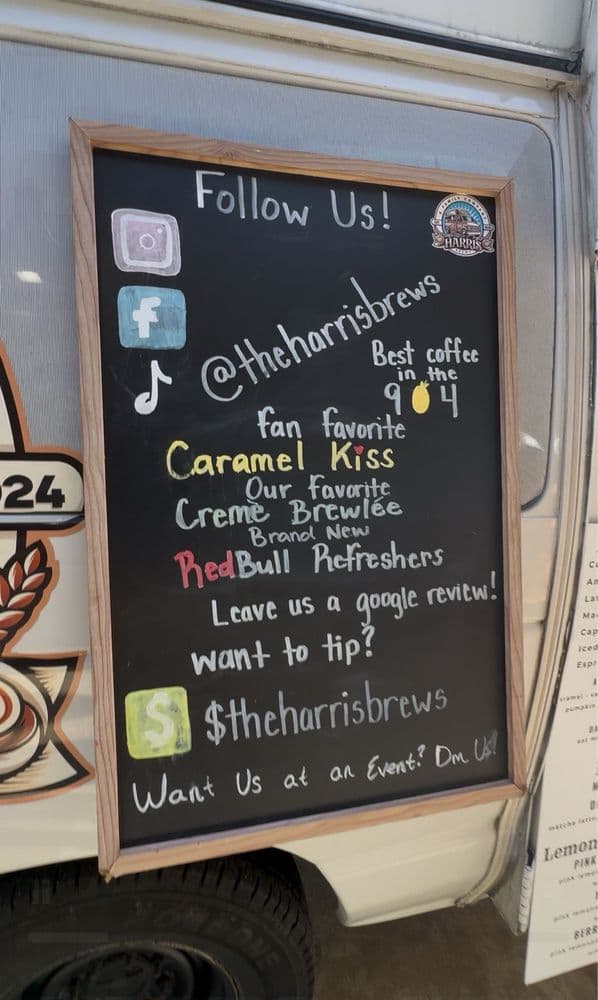 Follow Us!
HARRIS
@theharrisbrews
Best coffee
in the
9 4
fan favorite
Caramel Kiss
Our favorite
Cremè Brewlée
Brand New
RedBull Refreshers
Leave us a google review!
want to tip?
$ $theharrisbrews
Want Us at an Event? Dm Us!
24
Lemon
PINK
BERR